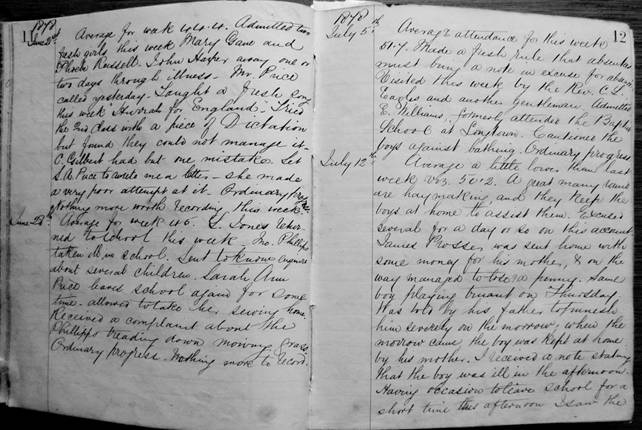 11
1878
June 21st
Average for week 46.4. Admitted two
fresh girls this week Mary Gane and
Phoebe Russell. John Harper away one or
two days through illness. Mr. Price
called yesterday. Taught a fresh song
this week Hurrah for England. Tried
the 2nd Class with a piece of Dictation
but found they could not manage it
C. Gilbert had but one mistake. Set
S. A. Price to write me a letter - she made
a very poor attempt at it. Ordinary progress
Nothing more worth recording this week.
June 28th
Average for week 46. L. Jones
to school this week, Mr. Phillips
taken ill in school. Sent to enquire
about several children. Sarah Ann
Price leaves school again for some
time - allowed to take her sewing home
Received a complaint about the
Phillipps treading down mowing grass
Ordinary progress. Nothing more to record.
12
1878
July 5th
Average attendance for this week
51.7. Made a fresh rule that absentees
must bring a note in excuse for absence
Visited this week by the Rev. C. S.
Eagles and another gentleman. Admitted
E. Williams, formerly attended the Baptist
School at Longtown. Cautioned the
boys against bathing. Ordinary progress
July 12th
Average a little lower than last
week viz. 50.2. A great many
are haymaking and they keep the
boys at home to assist them. Excused
several for a day or so on this account
James Prosser was sent home with
some money for his mother, & on the
way managed to lose a penny. Same
boy playing truant on Thursday
Was told by his father to punish
him severely on the morrow, when the
morrow came the boy was kept at home
by his mother. I received a note stating
that the boy was ill in the afternoon.
Having occasion to leave school for a
short time this afternoon I saw the